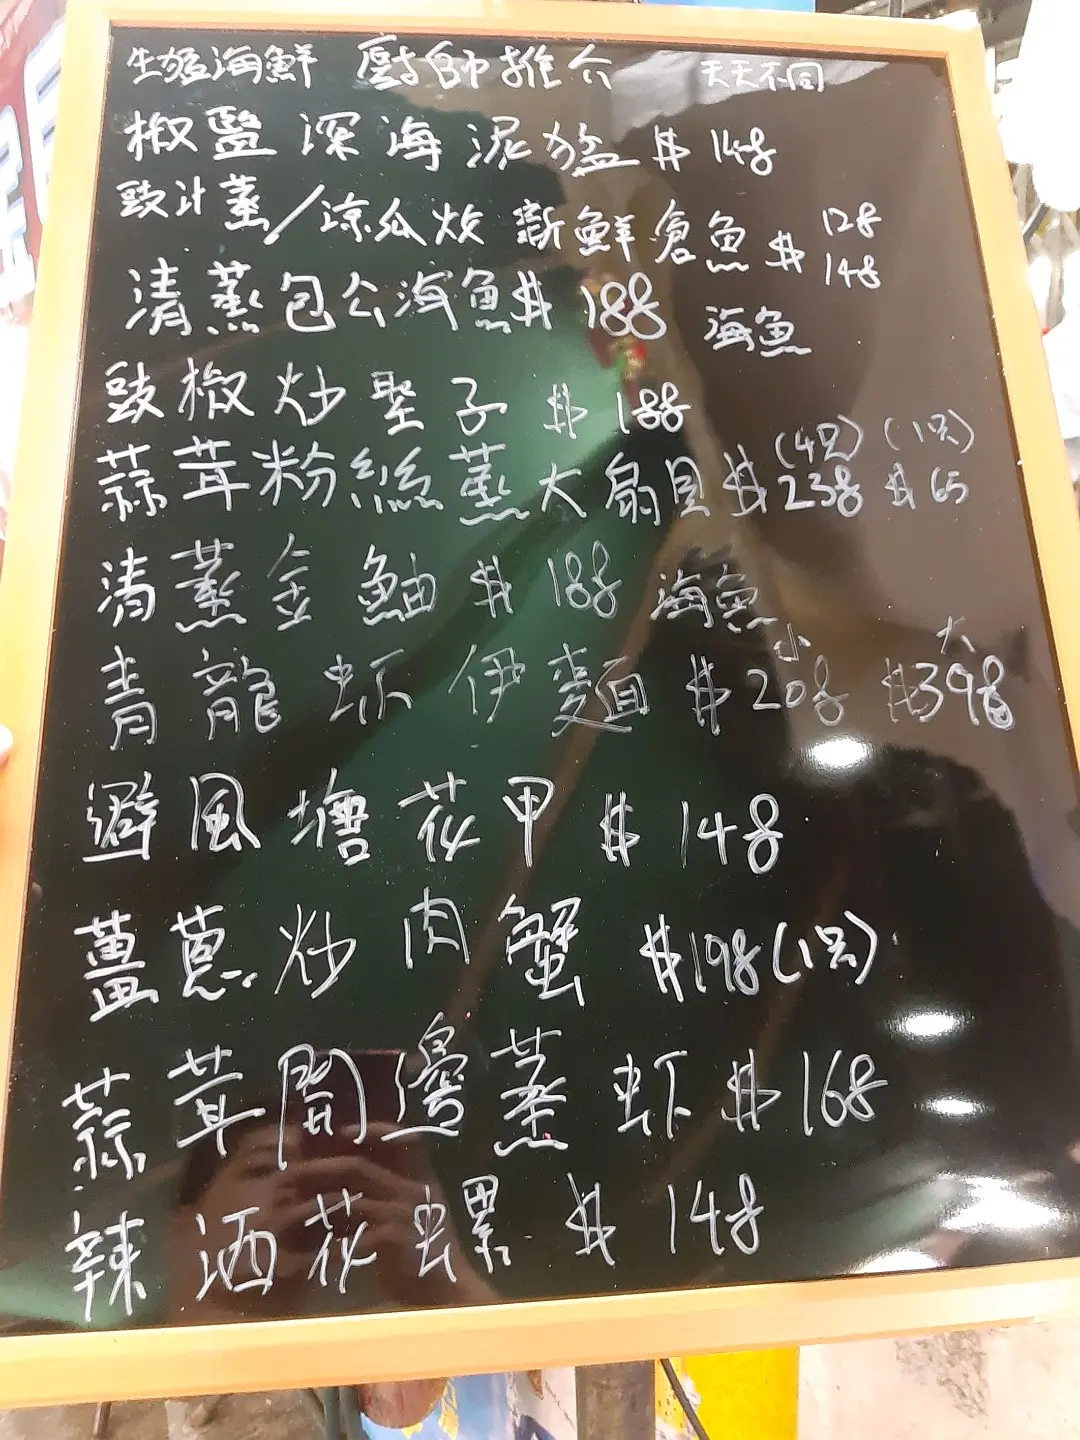 生猛海鮮 廚師推介 天天不同
椒鹽深海泥鯭 $148
豉汁蒸/凉瓜炆 新鮮倉魚 $ 128 148
清蒸包公海魚 $188 海魚
豉椒炒聖子 $188
蒜茸粉絲蒸大扇貝 $238 (4只) $65 (1只)
清蒸金鮋 $188 海魚
青龍虾伊麵 $208 小 $398 大
避風塘花甲 $148
薑蔥炒肉蟹 $198 (1只)
蒜茸開邊蒸虾 $168
辣酒花螺 $148